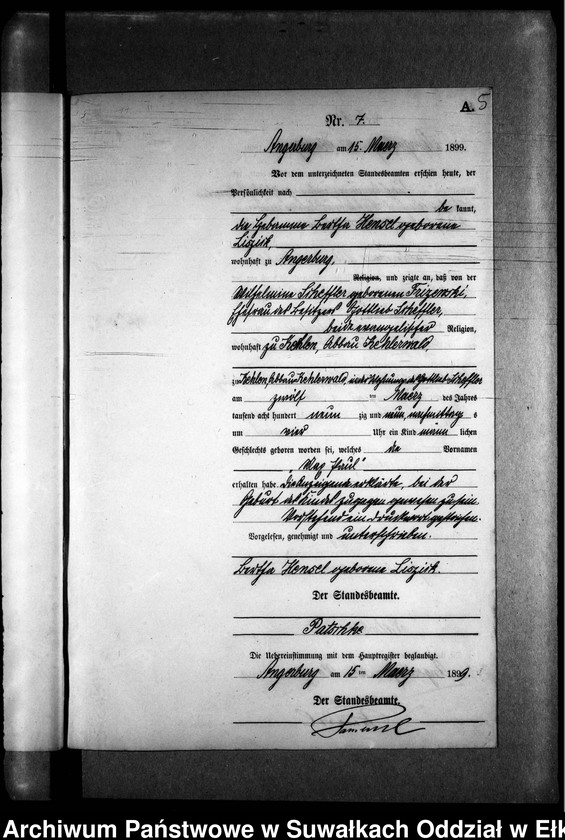 A. 5
Nr. 7.
Angerburg am 15. Maerz 1899.
Vor dem unterzeichneten Standesbeamten erschien heute, der
Persönlichkeit nach
be kannt,
die Hebamme Bertha Hensel geborene
Liszik,
wohnhaft zu Angerburg,
Religion, und zeigte an, daß von der
Wilhelmine Scheffler geborenen Trizenski,
Ehefrau des Besitzers Gottlieb Scheffler,
beide evangelischer Religion,
wohnhaft zu Kehlen, Abbau Kehlerwald,
zu Kehlen, Abbau Kehlerwald, in der Wohnung des Gottlieb Scheffler
am zwölf ten Maerz des Jahres
tausend acht hundert neun zig und neun, nachmittag s
um vier Uhr ein Kind männ lichen
Geschlechts geboren worden sei, welches die Vornamen
"Max Paul"
erhalten habe. Die Anzeigende erklärte, bei der
Geburt des Kindes zugegen gewesen zu sein.
Vorstehend ein Druckwort gestrichen.
Vorgelesen, genehmigt und unterschrieben.
Bertha Hensel geborene Liszik.
Der Standesbeamte.
Patschke
Die Uebereinstimmung mit dem Hauptregister beglaubigt.
Angerburg am 15 ten Maerz 1899.
Der Standesbeamte.
Archiwum Państwowe w Suwałkach Oddział w Ełk